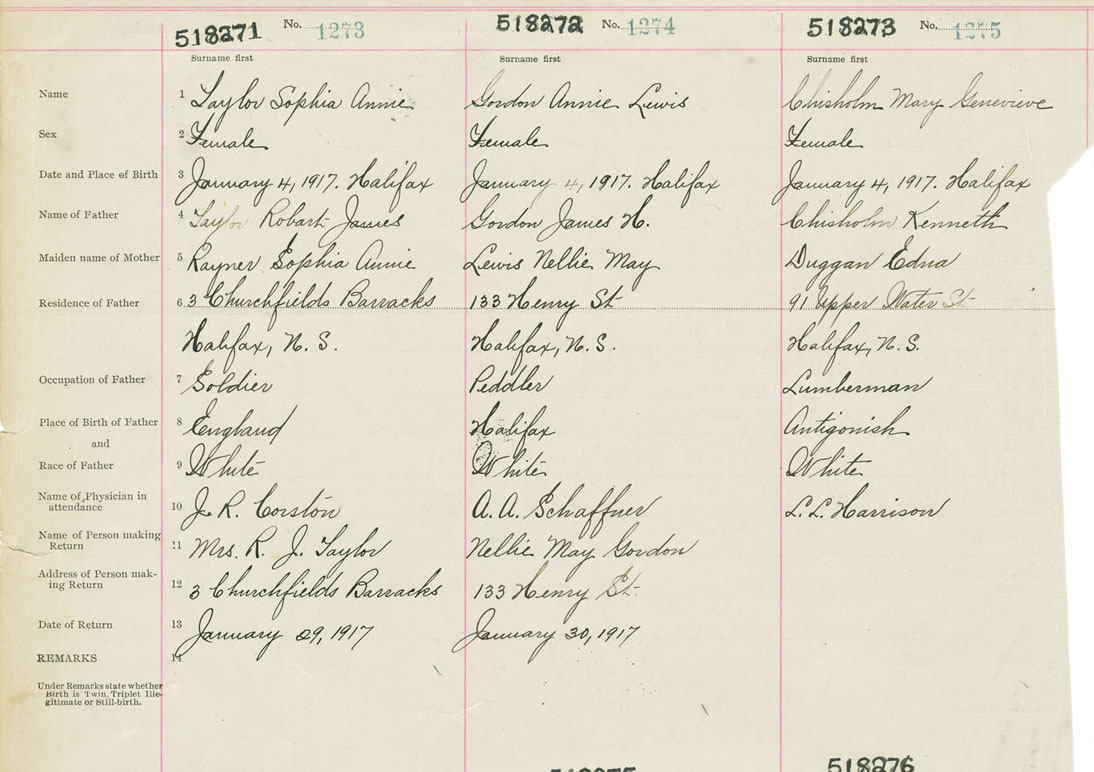 518271 No. 1273 518272 No. 1274 518273 No. 1275
Surname first Surname first Surname first
Name 1 Taylor Sophia Annie Gordon Annie Lewis Chisholm Mary Genevieve
Sex 2 Female Female Female
Date and Place of Birth 3 January 4, 1917. Halifax January 4, 1917. Halifax January 4, 1917. Halifax
Name of Father 4 Taylor Robart James Gordon James H. Chisholm Kenneth
Maiden name of Mother 5 Rayner Sophia Annie Lewis Nellie May Duggan Edna
Residence of Father 6 3 Churchfields Barracks 133 Henry St 91 Upper Water St.
Halifax, N. S. Halifax, N. S. Halifax, N. S.
Occupation of Father 7 Soldier Peddler Lumberman
Place of Birth of Father 8 England Halifax Antigonish
and
Race of Father 9 White White White
Name of Physician in
attendance 10 J. R. Corston A. A. Schaffner L. L. Harrison
Name of Person making
Return 11 Mrs. R. J. Taylor Nellie May Gordon
Address of Person mak-
ing Return 12 3 Churchfields Barracks 133 Henry St.
Date of Return 13 January 29, 1917 January 30, 1917
REMARKS 14
Under Remarks state whether
Birth is Twin, Triplet Ille-
gitimate or Still-birth.
518276